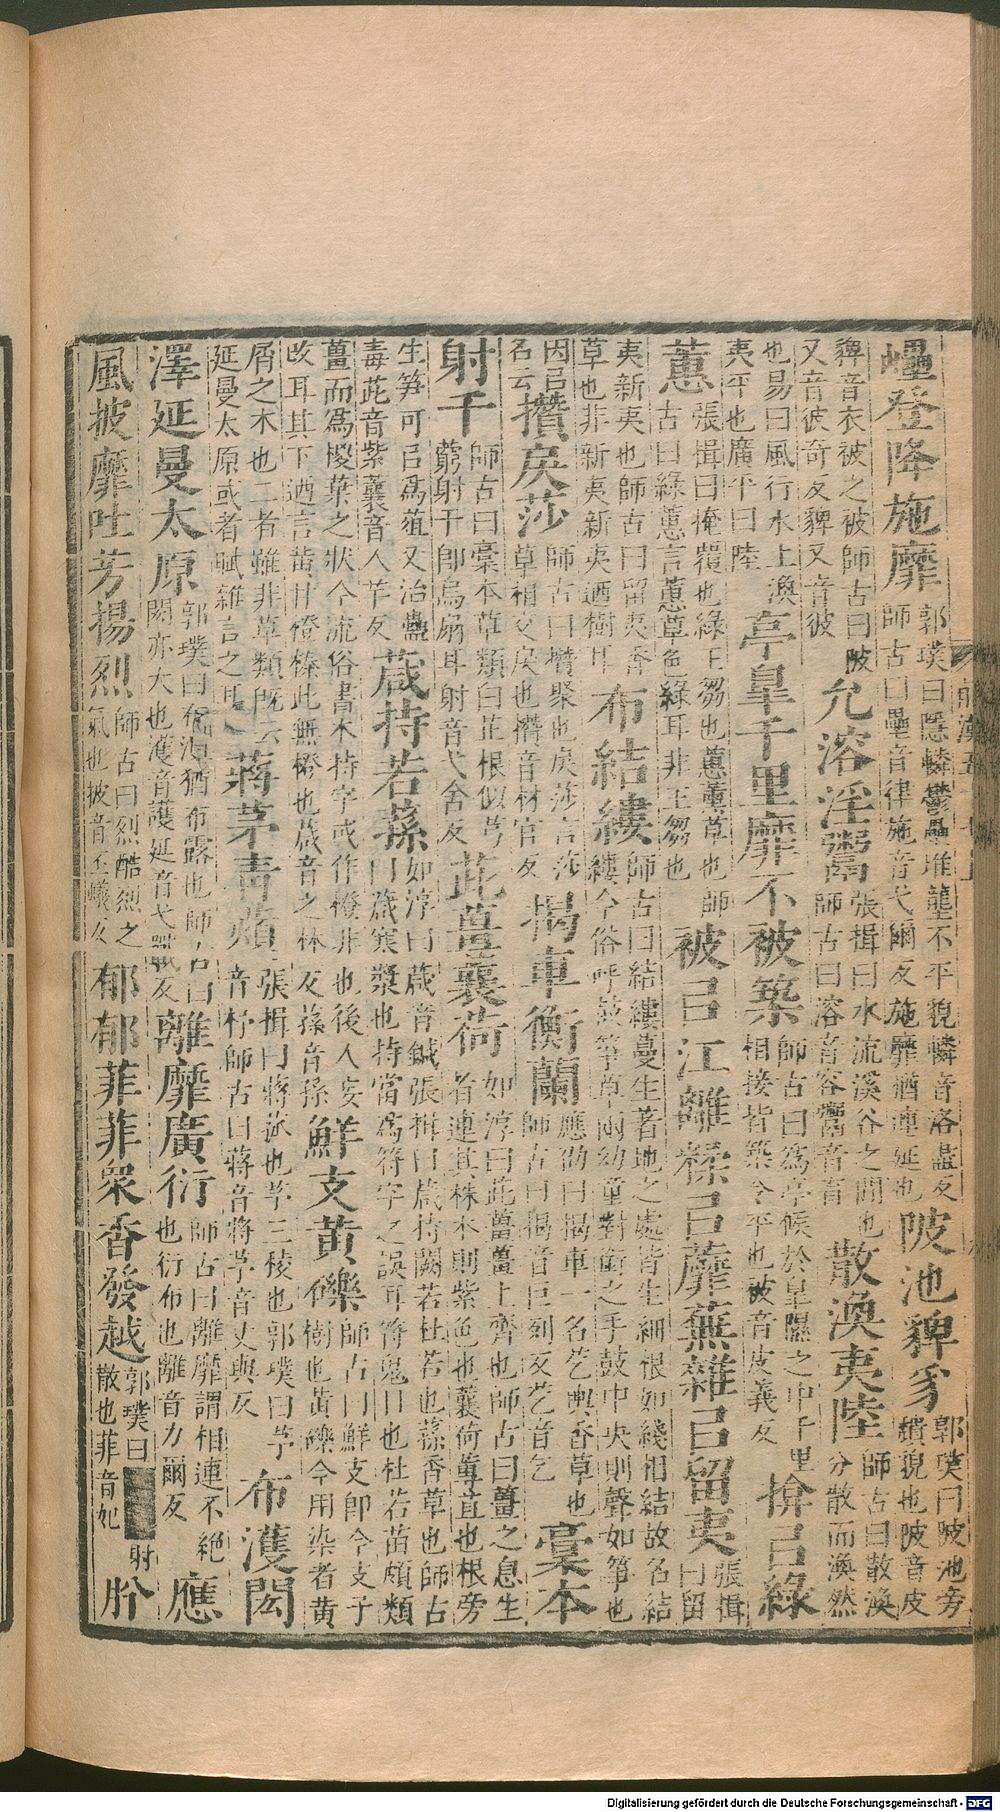 壘登降施靡郭璞曰隱轔鬱壘堆壟不平貌轔音洛盡反師古曰壘音律施音弋爾反施靡猶連延也陂池貏豸郭璞曰陂池旁頹貌也陂音皮
貏音衣被之被師古曰陂又音彼奇反貏又音彼允溶淫鬻張揖曰水流溪谷之間也師古曰溶音容鬻音育散渙夷陸師古曰散渙分散而渙然
也易曰風行水上渙夷平也廣平曰陸亭皐千里靡不被築師古曰爲亭候於皐隰之中千里相接皆築令平也被音皮義反揜㠯綠
蕙張揖曰掩覆也綠王芻也蕙薰草也師古曰綠蕙言蕙草色綠耳非王芻也被㠯江離糅㠯蘪蕪雜㠯留夷張揖曰留
夷新夷也師古曰留夷香草也非新夷新夷乃樹耳布結縷師古曰結縷蔓生著地之處皆生細根如綫相結故名結縷今俗呼鼓箏草兩幼童對銜之手鼓中央則聲如箏也
因㠯名云攢戾莎師古曰攢聚也戾莎言莎草相交戾也攢音材官反揭車衡蘭應劭曰揭車一名䒗輿香草也師古曰揭音巨列反䒗音乞槀本
射干師古曰槀本草類白芷根似芎藭射干即烏扇耳射音弋舍反茈薑蘘荷如淳曰茈薑薑上齊也師古曰薑之息生者連其株本則紫色也蘘荷蓴苴也根旁
生笋可㠯爲葅又治蠱毒茈音紫蘘音人羊反葴持若蓀如淳曰葴音鍼張揖曰葴持闕若杜若也蓀香草也師古曰葴寒漿也持當爲符字之誤耳符鬼目也杜若苗頗類
薑而爲椶葉之狀今流俗書本持字或作橙非也後人妄改耳其下迺言黃甘橙楱此無橙也葴音之林反蓀音孫鮮支黃礫師古曰鮮支即今支子樹也黃礫今用染者黃
屑之木也二者雖非草類旣云延曼太原或者賦雜言之耳蔣茅青薠張揖曰蔣菰也芧三稜也郭璞曰芧音杼師古曰蔣音將芧音丈與反布濩閎
澤延曼太原郭璞曰布濩猶布露也師古曰閎亦大也濩音護延音弋戰反離靡廣衍師古曰離靡謂相連不絕也衍布也離音力爾反應
風披靡吐芳揚烈師古曰烈酷烈之氣也披音丕蟻反郁郁菲菲衆香發越郭璞曰射散也菲音妃肸
Digitalisierung gefördert durch die Deutsche Forschungsgemeinschaft - DFG